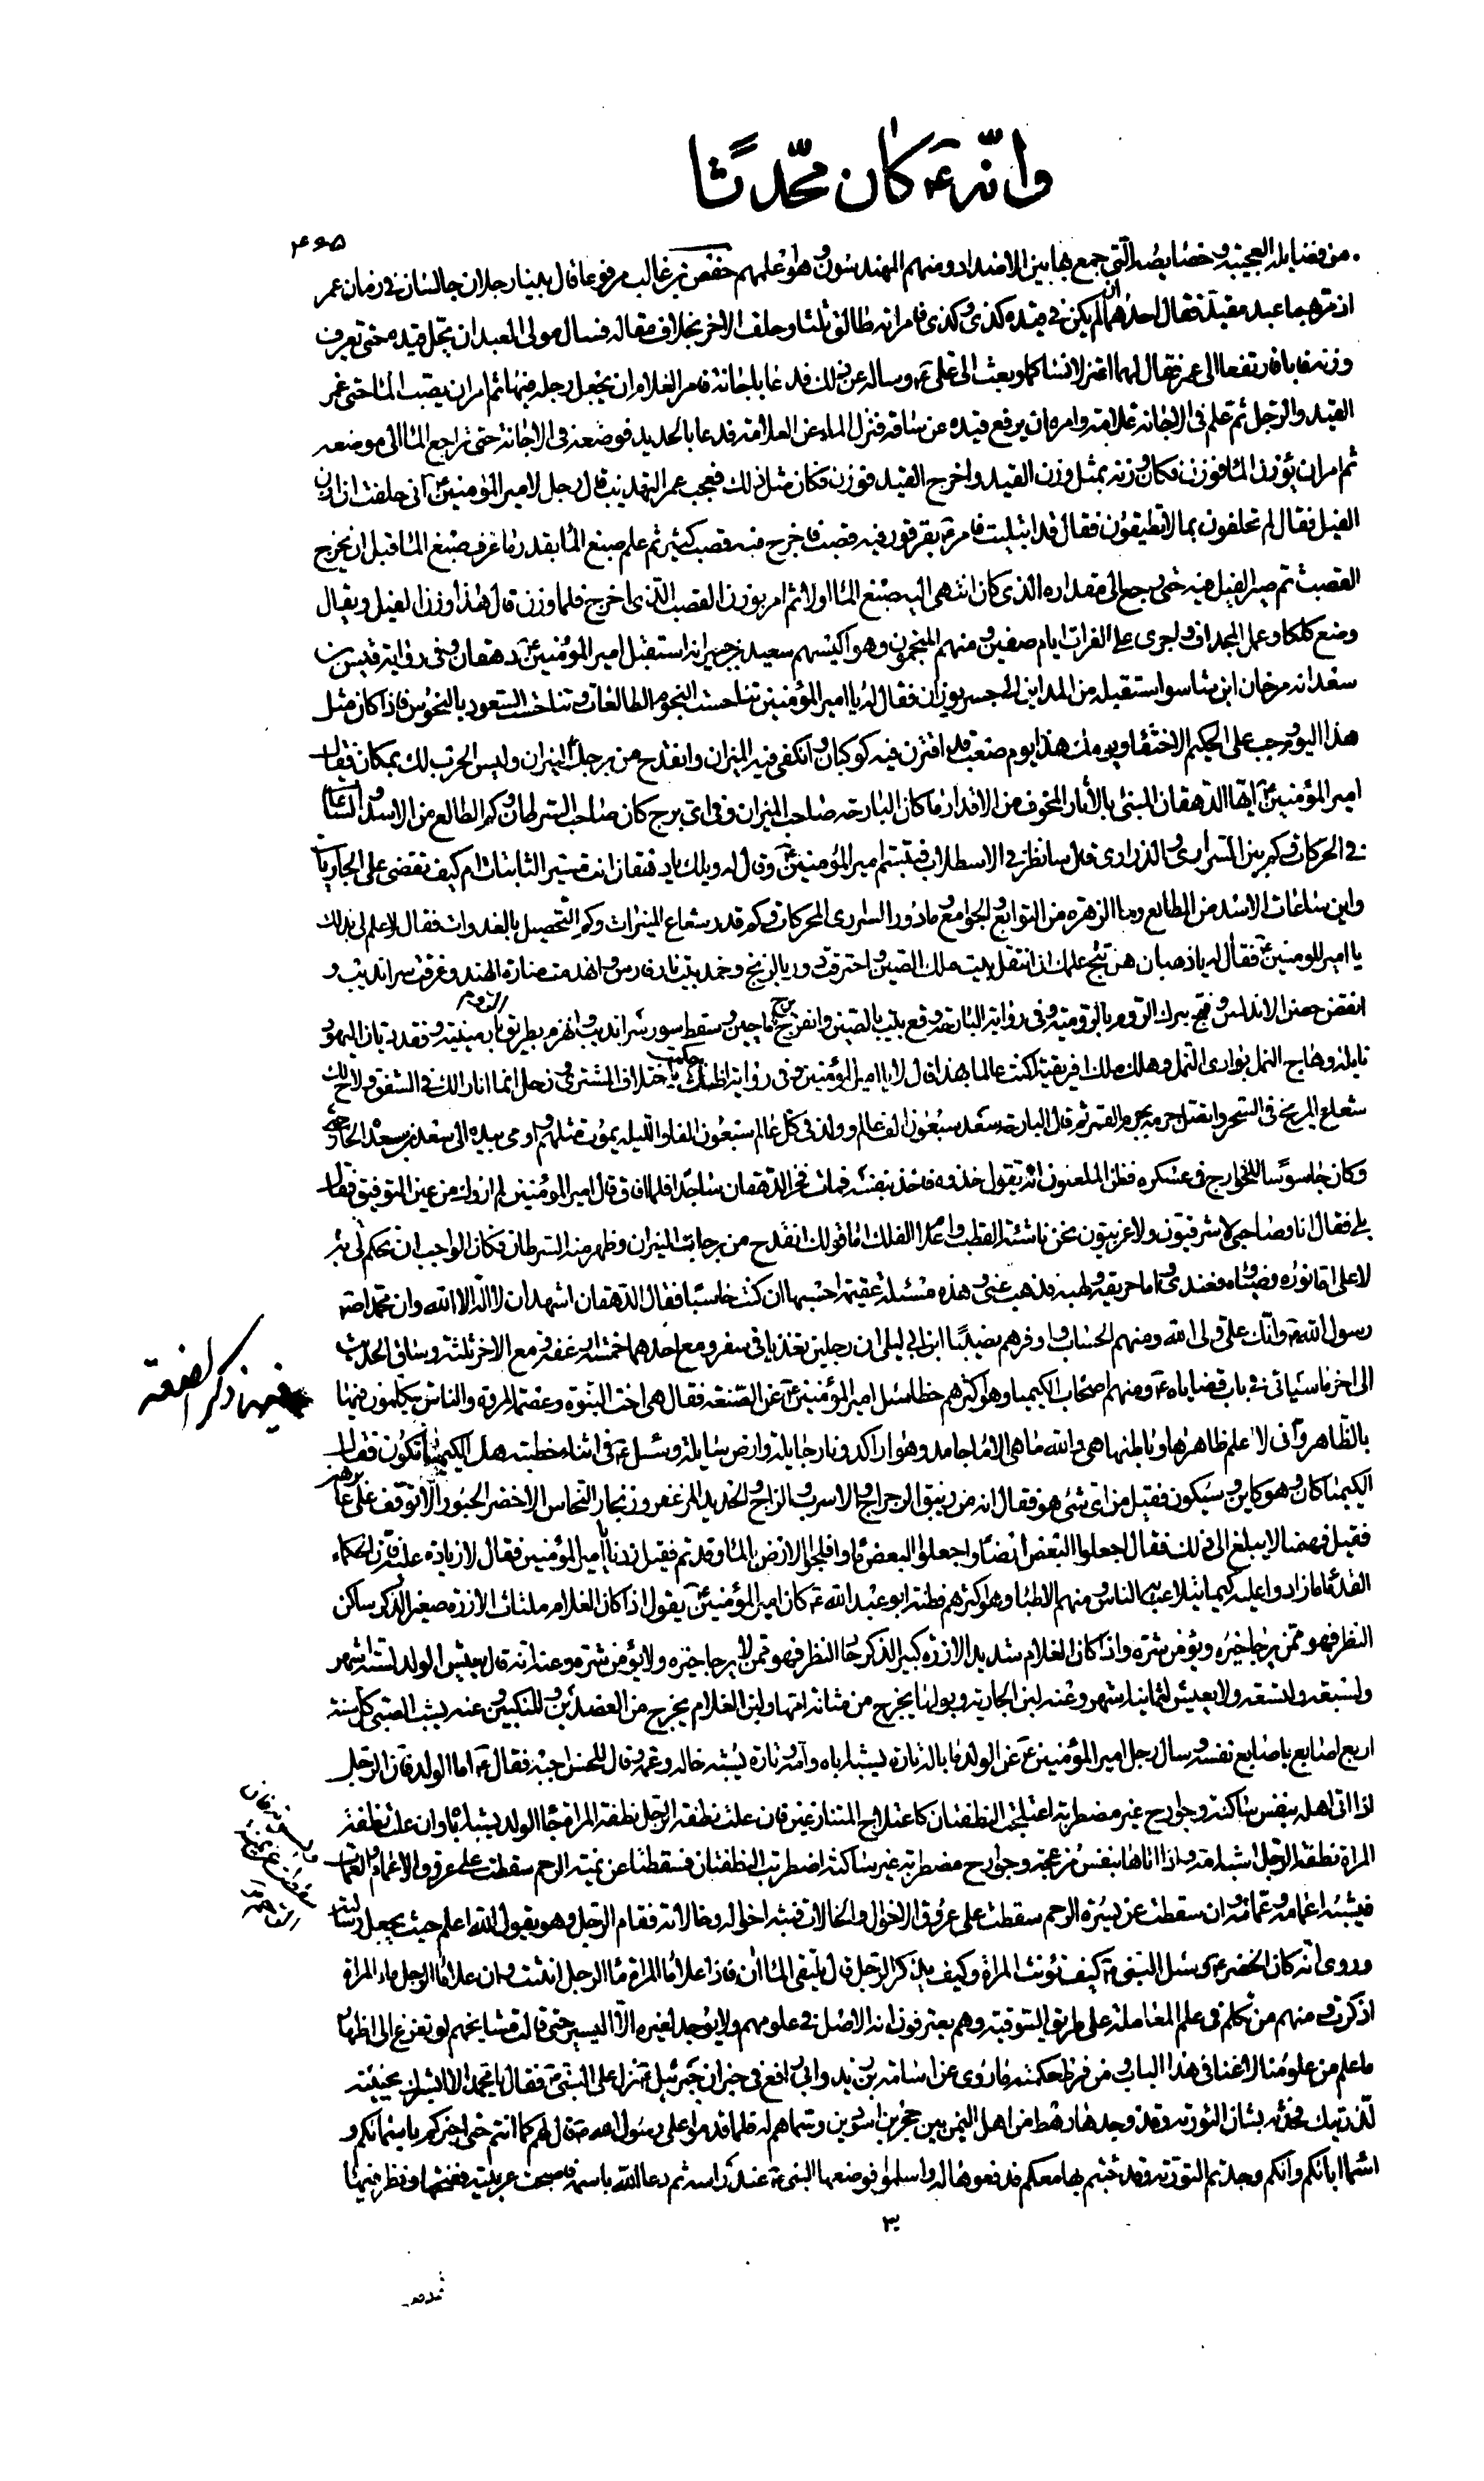 وانّه ع كان محّدثا
٤٦٥
من فضايله العجيبة وخصايصه الّتى جمع بها بين الاضداد ومنهم المهندسون وهو اعلمهم حفص بن غالب مرفوعا قال بينا رجلان جالسان فى زمان عمر
اذ مرّ بهما عبد مقيد فقال احدهما ان لم يكن فى قيده كذى وكذى فامراته طالق ثلثا وحلف الاخر بخلاف مقاله فسال مولى العبد ان يحلّ قيده حتى يعرف
وزنه فابا فارتفعا الى عمر فقال لهما اعتزلا نساكما وبعث الى على ع وساله عن ذلك فدعا باجانة فامر الغلام ان يجعل رجله فيها ثم امر ان يصّب الماء حتى غمر
القيد والرّجل ثم علم فى الاجانة علامة وامره ان يرفع قيده عن ساقه فنزل الماء عن العلامة فدعا بالحديد فوضعه فى الاجانة حتى تراجع الماء الى موضعه
ثم امر ان يوزن الماء فوزن فكان وزنه بمثل وزن القيد واخرج القيد فوزن فكان مثل ذلك فعجب عمر التهذيب قال رجل لامير المؤمنين ع انى حلفت ان ازن
الفيل فقال لم تحلفون بما لا تطيقون فقال قد ابتليت فامر ع بقرقور فيه قصب فاخرج منه قصب كثير ثم علم صبغ الماء بقدر ما عرف صبغ الماء قبل ان يخرج
القصب ثم صير الفيل فيه حتى رجع الى مقداره الذى كان انتهى اليه صبغ الماء اولا ثم امر بوزن القصب الّذى اخرج فلما وزن قال هذا وزن الفيل ويقال
وضع كلكا وعمل المجداف واجرى على الفرات ايام صفين ومنهم المنجمون وهو اكيسهم سعيد بن جبير انه استقبل امير المؤمنين ع دهقان وفى رواية قيس بن
سعد انه مرخان ابن شاسوا استقبله من المداين الى جسر بوزان فقال له يا امير المؤمنين تناحست النجوم الطالعات وتناحست السعود بالنحوس فاذا كان مثل
هذا اليوم وجب على الحكيم الاختفاء ويومك هذا يوم صعب قد اقترن فيه كوكبان وانكفى فيه الميزان وانقدح من برجك النيران وليس الحرب لك بمكان فقال
امير المؤمنين ع ايّها الدهقان المنبئ بالاثار المخوف من الاقدار ما كان البارحه صاحب الميزان وفى اىّ برج كان صاحب السرطان وكم الطالع من الاسد والساعات
فى الحركات وكم بين السرارى والذرارى قال سانظر فى الاسطرلاب فتبسّم امير المؤمنين ع وقال له ويلك يا دهقان انت مسّير الثابتات ام كيف تقضى على الجاريات
واين ساعات الاسد من المطالع وما الزهره من التوابع والجوامع وما دور السرارى المحركات وكم قدر شعاع المنيرات وكم التحصيل بالغدوات فقال لا علم لى بذلك
يا امير المؤمنين ع فقال له يا دهقان هل نتج علمك ان انتقل بيت ملك الصين واحترقت دور بالزنج وخمد بيت نار فارس وانهدمت منارة الهند وغرقت سرانديب و
انقض حصن الاندلس وفتح بترك الروم بالرومية وفى رواية البارحه وقع بيت بالصين وانفرج برج ماجين وسقط سور سرانديب وانهزم بطريق الروم بارمينية وفقد ديان اليهود
بايله وهاج النمل بوادى النمل وهلك ملك افريقية اكنت عالما بهذا قال لا يا امير المؤمنين وفى رواية اظنك حكمت باختلاف المشترى وزحل انما انارا لك فى الشفق ولاح لك
شعاع المريخ فى السحر واتصل جرمه بجرم القمر ثم قال البارحه سعد سبعون الف عالم وولد فى كل عالم سبعون الفا والليله يموت مثلهم واومى بيده الى سعد بن مسعدة الحارثى
وكان جاسوسا للخوارج فى عسكره فظن الملعون انه يقول خذوه فاخذ بنفسه فمات فخر الدهقان ساجدا فلما افاق قال امير المؤمنين الم اروك من عين التوفيق فقال
بلى فقال انا وصاحبى لا شرقيون ولا غربيون نحن ناشئة القطب واعلام الفلك اما قولك انقدح من برجك النيران وظهر منه السرطان فكان الواجب ان تحكم لى به
لا على اما نوره وضياه فعندى واما حريقه ولهبه فذهب عنى وهذه مسئلة عقيمة احسبها ان كنت حاسبا فقال الدهقان اشهد ان لا اله الا الله وان محمدا ص
رسول الله وانّك على ولى الله ومنهم الحساب وهو اوفرهم نصيبا ابن ابى ليلى ان رجلين تغذيا فى سفر ومع احدهما خمسة ارغفة ومع الاخر ثلثة وساق الحديث
الى اخر ما سياتى فى باب قضاياه ع ومنهم اصحاب الكيميا وهو اكثرهم حظا سئل امير المؤمنين ع عن الصنعة فقال هى اخت النبوة وعصمة المروة والناس يتكلمون فيها
بالظاهر وانى لاعلم ظاهرها وباطنها هى والله ما هى الا ماء جامد وهواء راكد ونار جايلة وارض سايلة وسئل ع فى اثناء خطبته هل الكيميا تكون فقال
الكيميا كان وهو كاين وسيكون فقيل من اى شئ هو فقال انه من الزيبق الرجراج والاسرب والزاج والحديد المزعفر وزنجار النحاس الاخضر الحبور الا توقف على عابرهن
فقيل فهمنا لا يبلغ الى ذلك فقال اجعلوا البعض ارضا واجعلوا البعض ماء وافلحوا الارض بالماء وقد تم فقيل زدنا يا امير المؤمنين فقال لا زيادة عليه فان الحكماء
القدماء ما زادوا عليه كيما يتلاعب به الناس ومنهم الاطباء وهو اكثرهم فطنة ابو عبد الله ع كان امير المؤمنين ع يقول اذا كان الغلام ملتاث الازرة صغير الذكر ساكن
النظر فهو ممن يرجا خيره ويؤمن شره واذا كان الغلام شديد الازره كبير الذكر حاد النظر فهو ممن لا يرجا خيره ولا يؤمن شره وعنه انه قال يعيش الولد لستة اشهر
ولسبعة ولتسعة ولا يعيش لثمانية اشهر وعنه لبن الجارية وبولها يخرج من مثانة امها ولبن الغلام يخرج من العضدين والمنكبين وعنه يشب الصبى كل سنة
اربع اصابع باصابع نفسه وسال رجل امير المؤمنين ع عن الولد ما باله تارة يشبه اباه وامه وتارة يشبه خاله وعمه فقال للحسن اجبه فقال ع اما الولد فان الرجل
اذا اتى اهله بنفس ساكنة وجوارح غير مضطربة اعتلجت النطفتان كاعتلاج المتنازعين فان علت نطفة الرجل نطفة المراة جاء الولد يشبه اباه وان علت نطفة
المراة نطفة الرجل اشبه امه واذا اتاها بنفس مزعجة وجوارح مضطربة غير ساكنة اضطربت النطفتان فسقطتا عن يمنة الرحم سقطت على عروق الاعمام والعمات
فيشبه اعمامه وعماته وان سقطت عن يسرة الرحم سقطت على عروق الاخوال والخالات فشبه اخواله وخالاته فقام الرجل وهو يقول الله اعلم حيث يجعل رسالته
وروى انه كان الخضر ع وسئل النبى ص كيف تؤنث المراة وكيف يذكر الرجل قال يلتقى الماءان فاذا علا ماء المراة ماء الرجل انثت وان علا ماء الرجل ماء المراة
اذكرت ومنهم من تكلم فى علم المعاملة على طريق الصوفية وهم يعترفون انه الاصل فى علومهم ولا يوجد لغيره الا اليسير حتى قالت مشايخهم لو تفرغ الى اظهار
ما علم من علومنا لاغنا فى هذا الباب ومن فرط حكمته ما روى عن اسامة بن زيد وابى رافع فى خبر ان جبرئيل ع نزل على النبى ص فقال يا محمد الا ابشرك بخبيئة
لذريتك فحدثه بشان التورية وقد وجدها رهط من اهل اليمن بين حجرين اسودين وسماهم له فلما قدموا على رسول الله ص قال لهم كما انتم حتى اخبركم باسمائكم و
اسماء ابائكم وانكم وجدتم التورية وقد جئتم بها معكم فدفعوها له واسلموا فوضعها النبى ص عند راسه ثم دعا الله باسمه فاصبحت عربية ففتحها ونظر فيها
فيها ذكر الصنعة